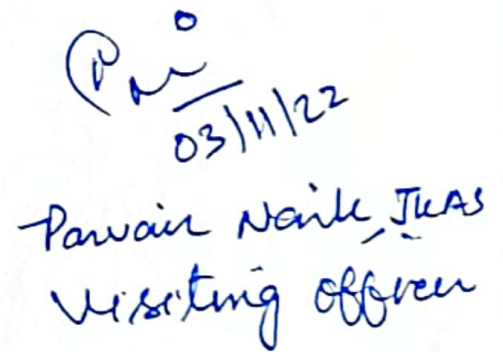 03/11/22
Parvair Naik, JKAS
Visiting officer